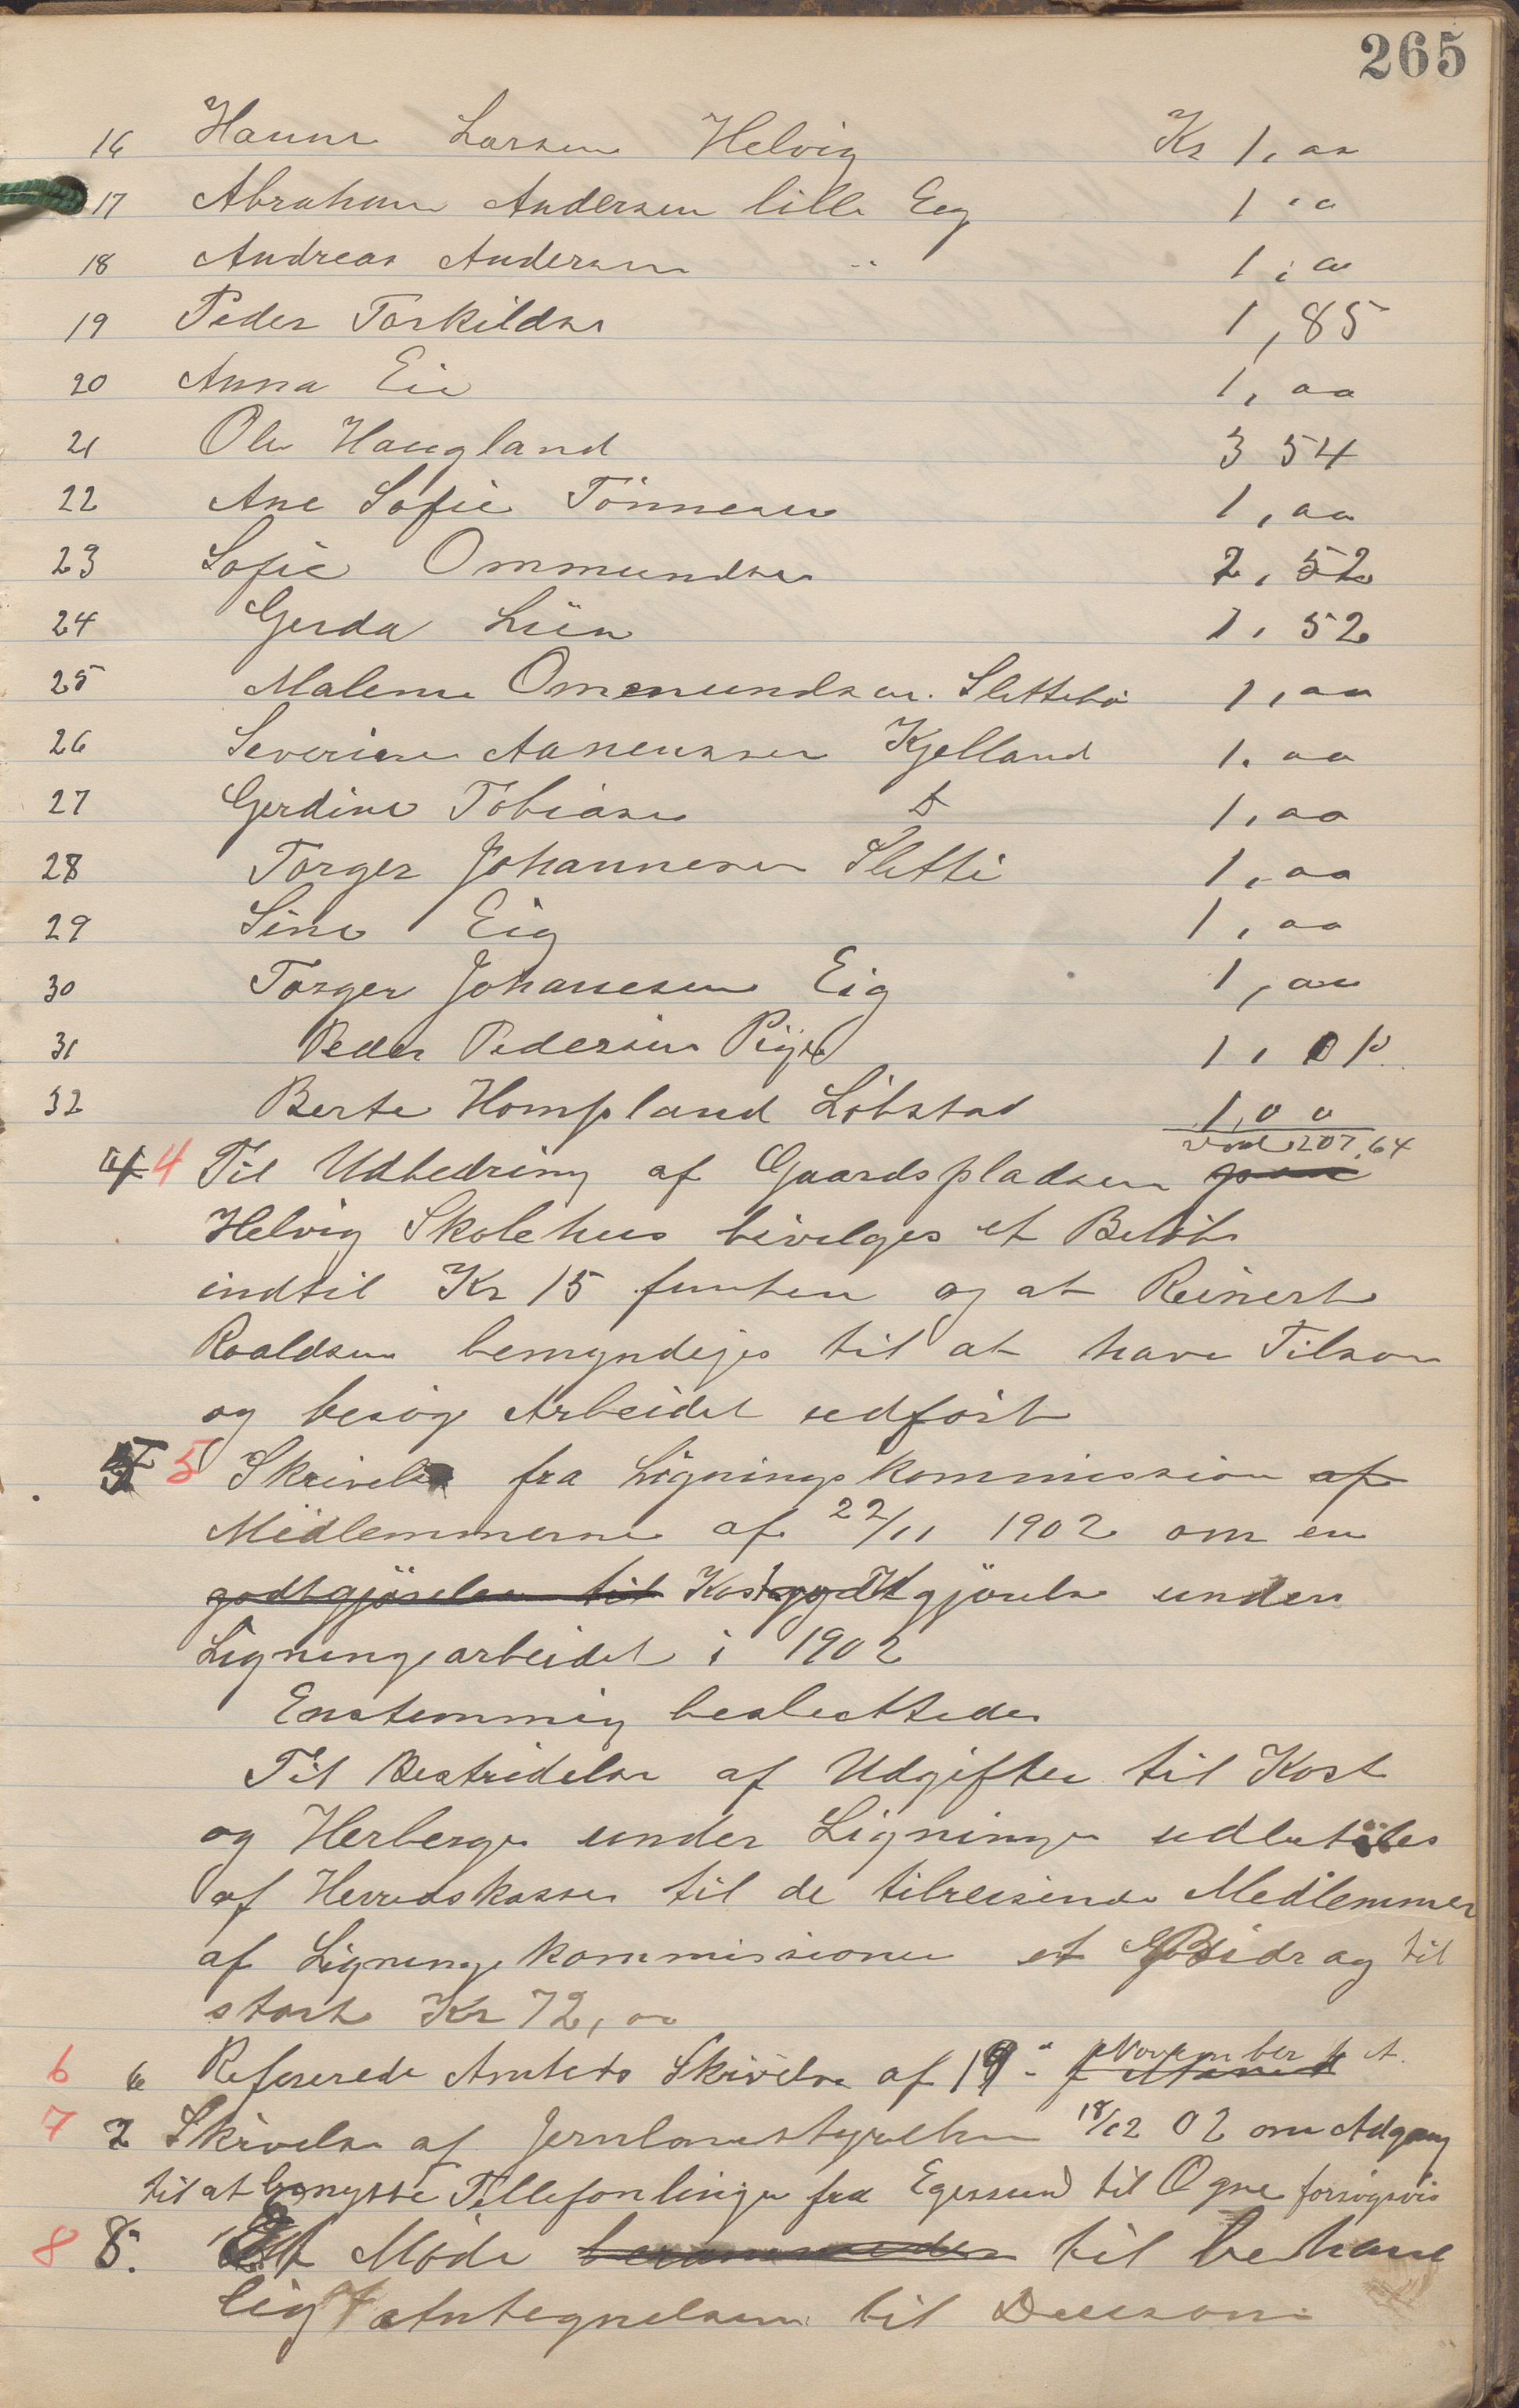 265
16 Hanne Larsen Helvig Kr 1,00
17 Abraham Andersen lille Eeg 1,00
18 Andreas Andersen " 1,00
19 Peder Torkildsen 1,85
20 Anna Eie 1,00
21 Ole Haugland 3 54
22 Ane Sofie Tönnesen 1,00
23 Sofie Ommundsen 2,52
24 Gerda Liën 1,52
25 Malene Ommundsen. Slettebö 1,00
26 Severine Aanensen Kjelland 1.00
27 Gerdine Tobiasen D 1,00
28 Torger Johannesen Slette 1,00
29 Sine Eig 1,00
30 Torger Johanesen Eig 1,00
31 Peder Pedersen 1,
32 Berte Hompland Löbstad 1,00
4 4 Til Udbedring af Gaardspladsen ved 207.64
Helvig Skolehus bevilges et Belöb
indtil Kr 15 femten og at Reinert
Roaldsen bemyndiges til at have Tilsyn
og besörge Arbeidet udfört
5 5 Skrivelse fra Ligningskommission af
Medlemmerne af 22/11 1902 om en
godtgjörelse til Kostgodtgjörelse under
Ligningsarbeidet i 1902
Enstemmig besluttedes
Til Bestridelse af Udgifter til Kost
og Herberge under Ligningen udbetales
af Herredskassen til de tilreisende Medlemmer
af Ligningskommissionen et Bidrag til
stort Kr 72,00
6 6 Refererede Amtets Skrivelse af 19" November
7 7 Skrivelse af Jernbanestyrelsen 18/12 02 om Adgang
til at benytte Tellefonlinjen fra Egersund til Ogne forsögsvis
8 8. Et Möde berammedes til behand
lig Antegnelsen til Decision